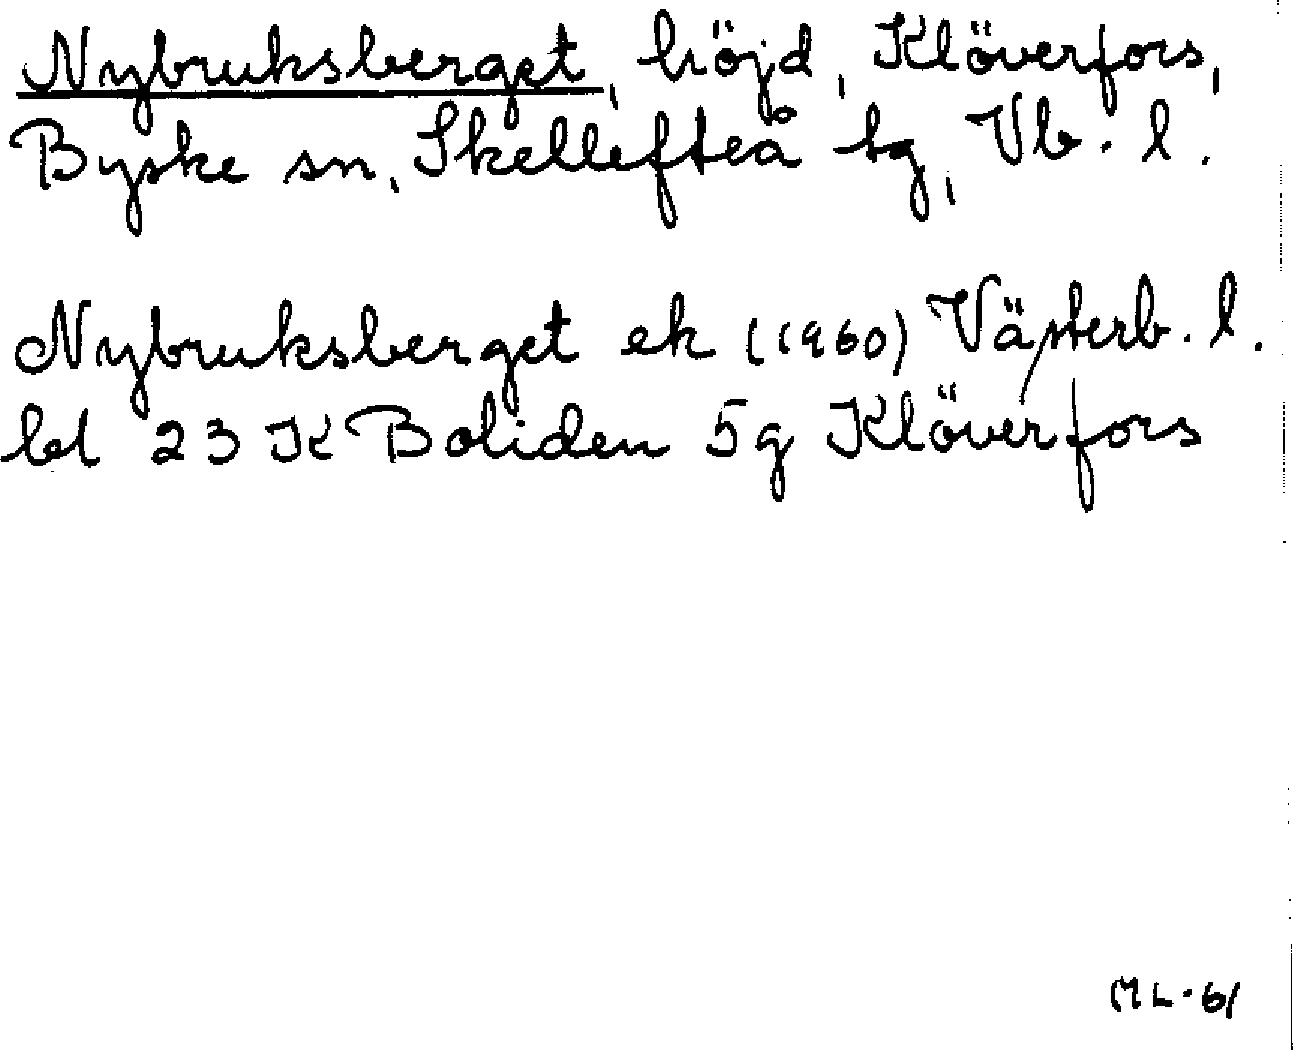 Nybruksberget, höjd, Klöverfors,
Byske sn, Skellefteå tg, Vb. l.
Nybruksberget ek (1960) Västerb. l.
bl 23 K Boliden 5g Klöverfors
ML-61